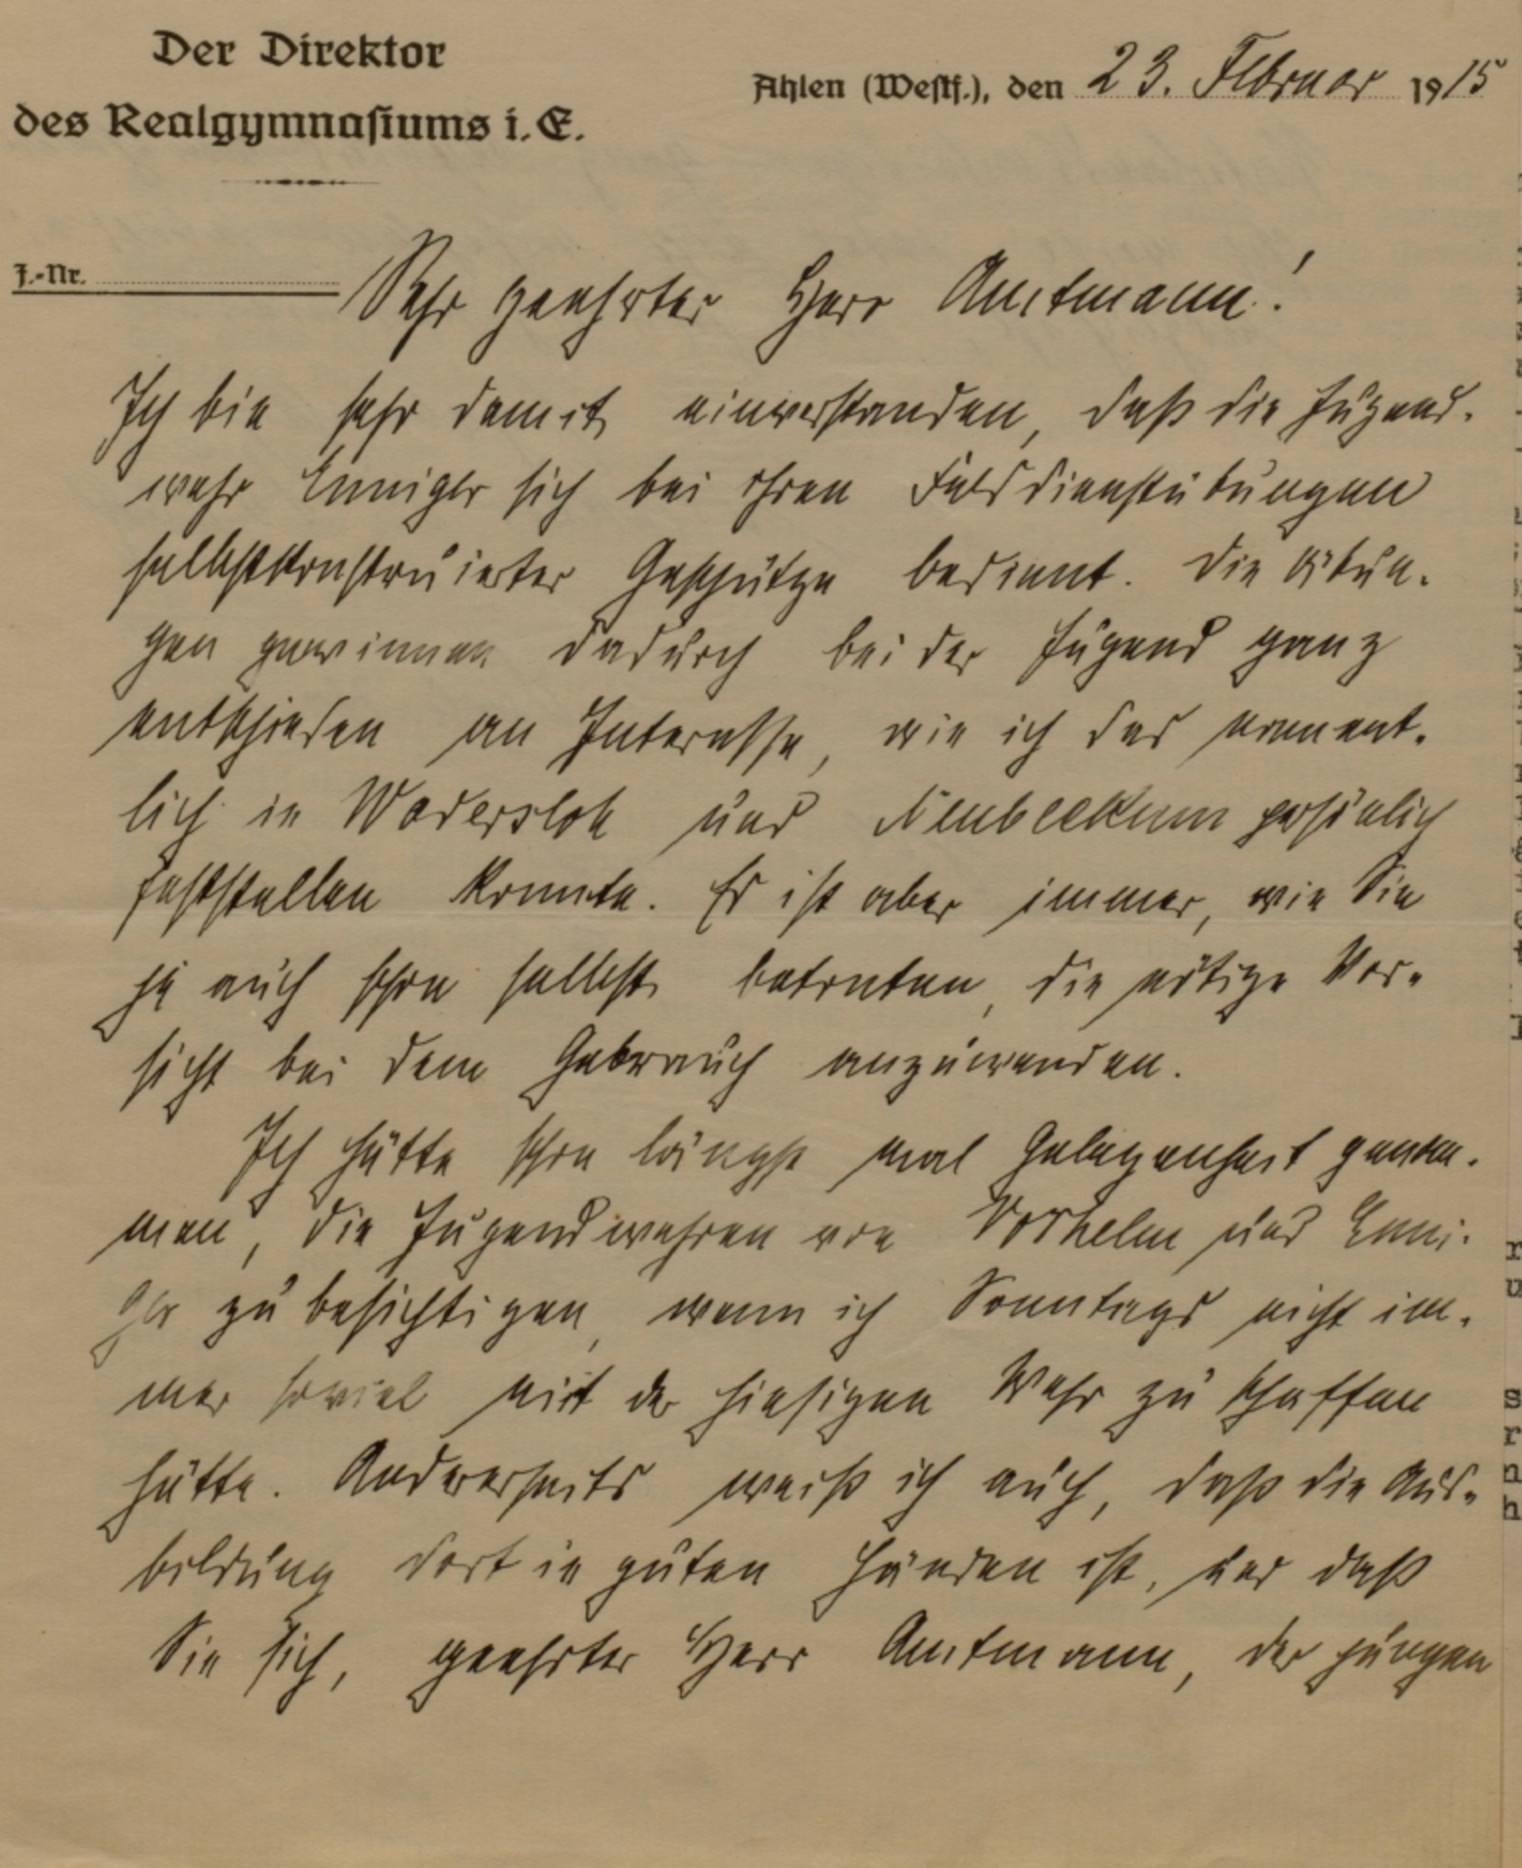 Der Direktor
des Realgymnasiums i. E.
Ahlen (Westf.), den 23. Februar 1915
J.-Nr.
Sehr geehrter Herr Amtmann!
Ich bin sehr damit einverstanden, daß die Jugend-
wehr Enniger sich bei ihren Felddienstübungen
selbstkonstruierter Geschütze bedient. Die Übun-
gen gewinnen dadurch bei der Jugend ganz
entschieden an Interesse, wie ich das nament-
lich in Wadersloh und Neubeckum persönlich
feststellen konnte. Es ist aber immer, wie Sie
ja auch schon selbst betonten, die nötige Vor-
sicht bei dem Gebrauch anzuwenden.
Ich hätte schon längst mal Gelegenheit genom-
men, die Jugendwehren von Vorhelm und Enni-
ger zu besichtigen, wenn ich Sonntags nicht im-
mer soviel mit der hiesigen Wehr zu schaffen
hätte. Andererseits weiß ich auch, daß die Aus-
bildung dort in guten Händen ist, und daß
Sie sich, geehrter Herr Amtmann, der jungen